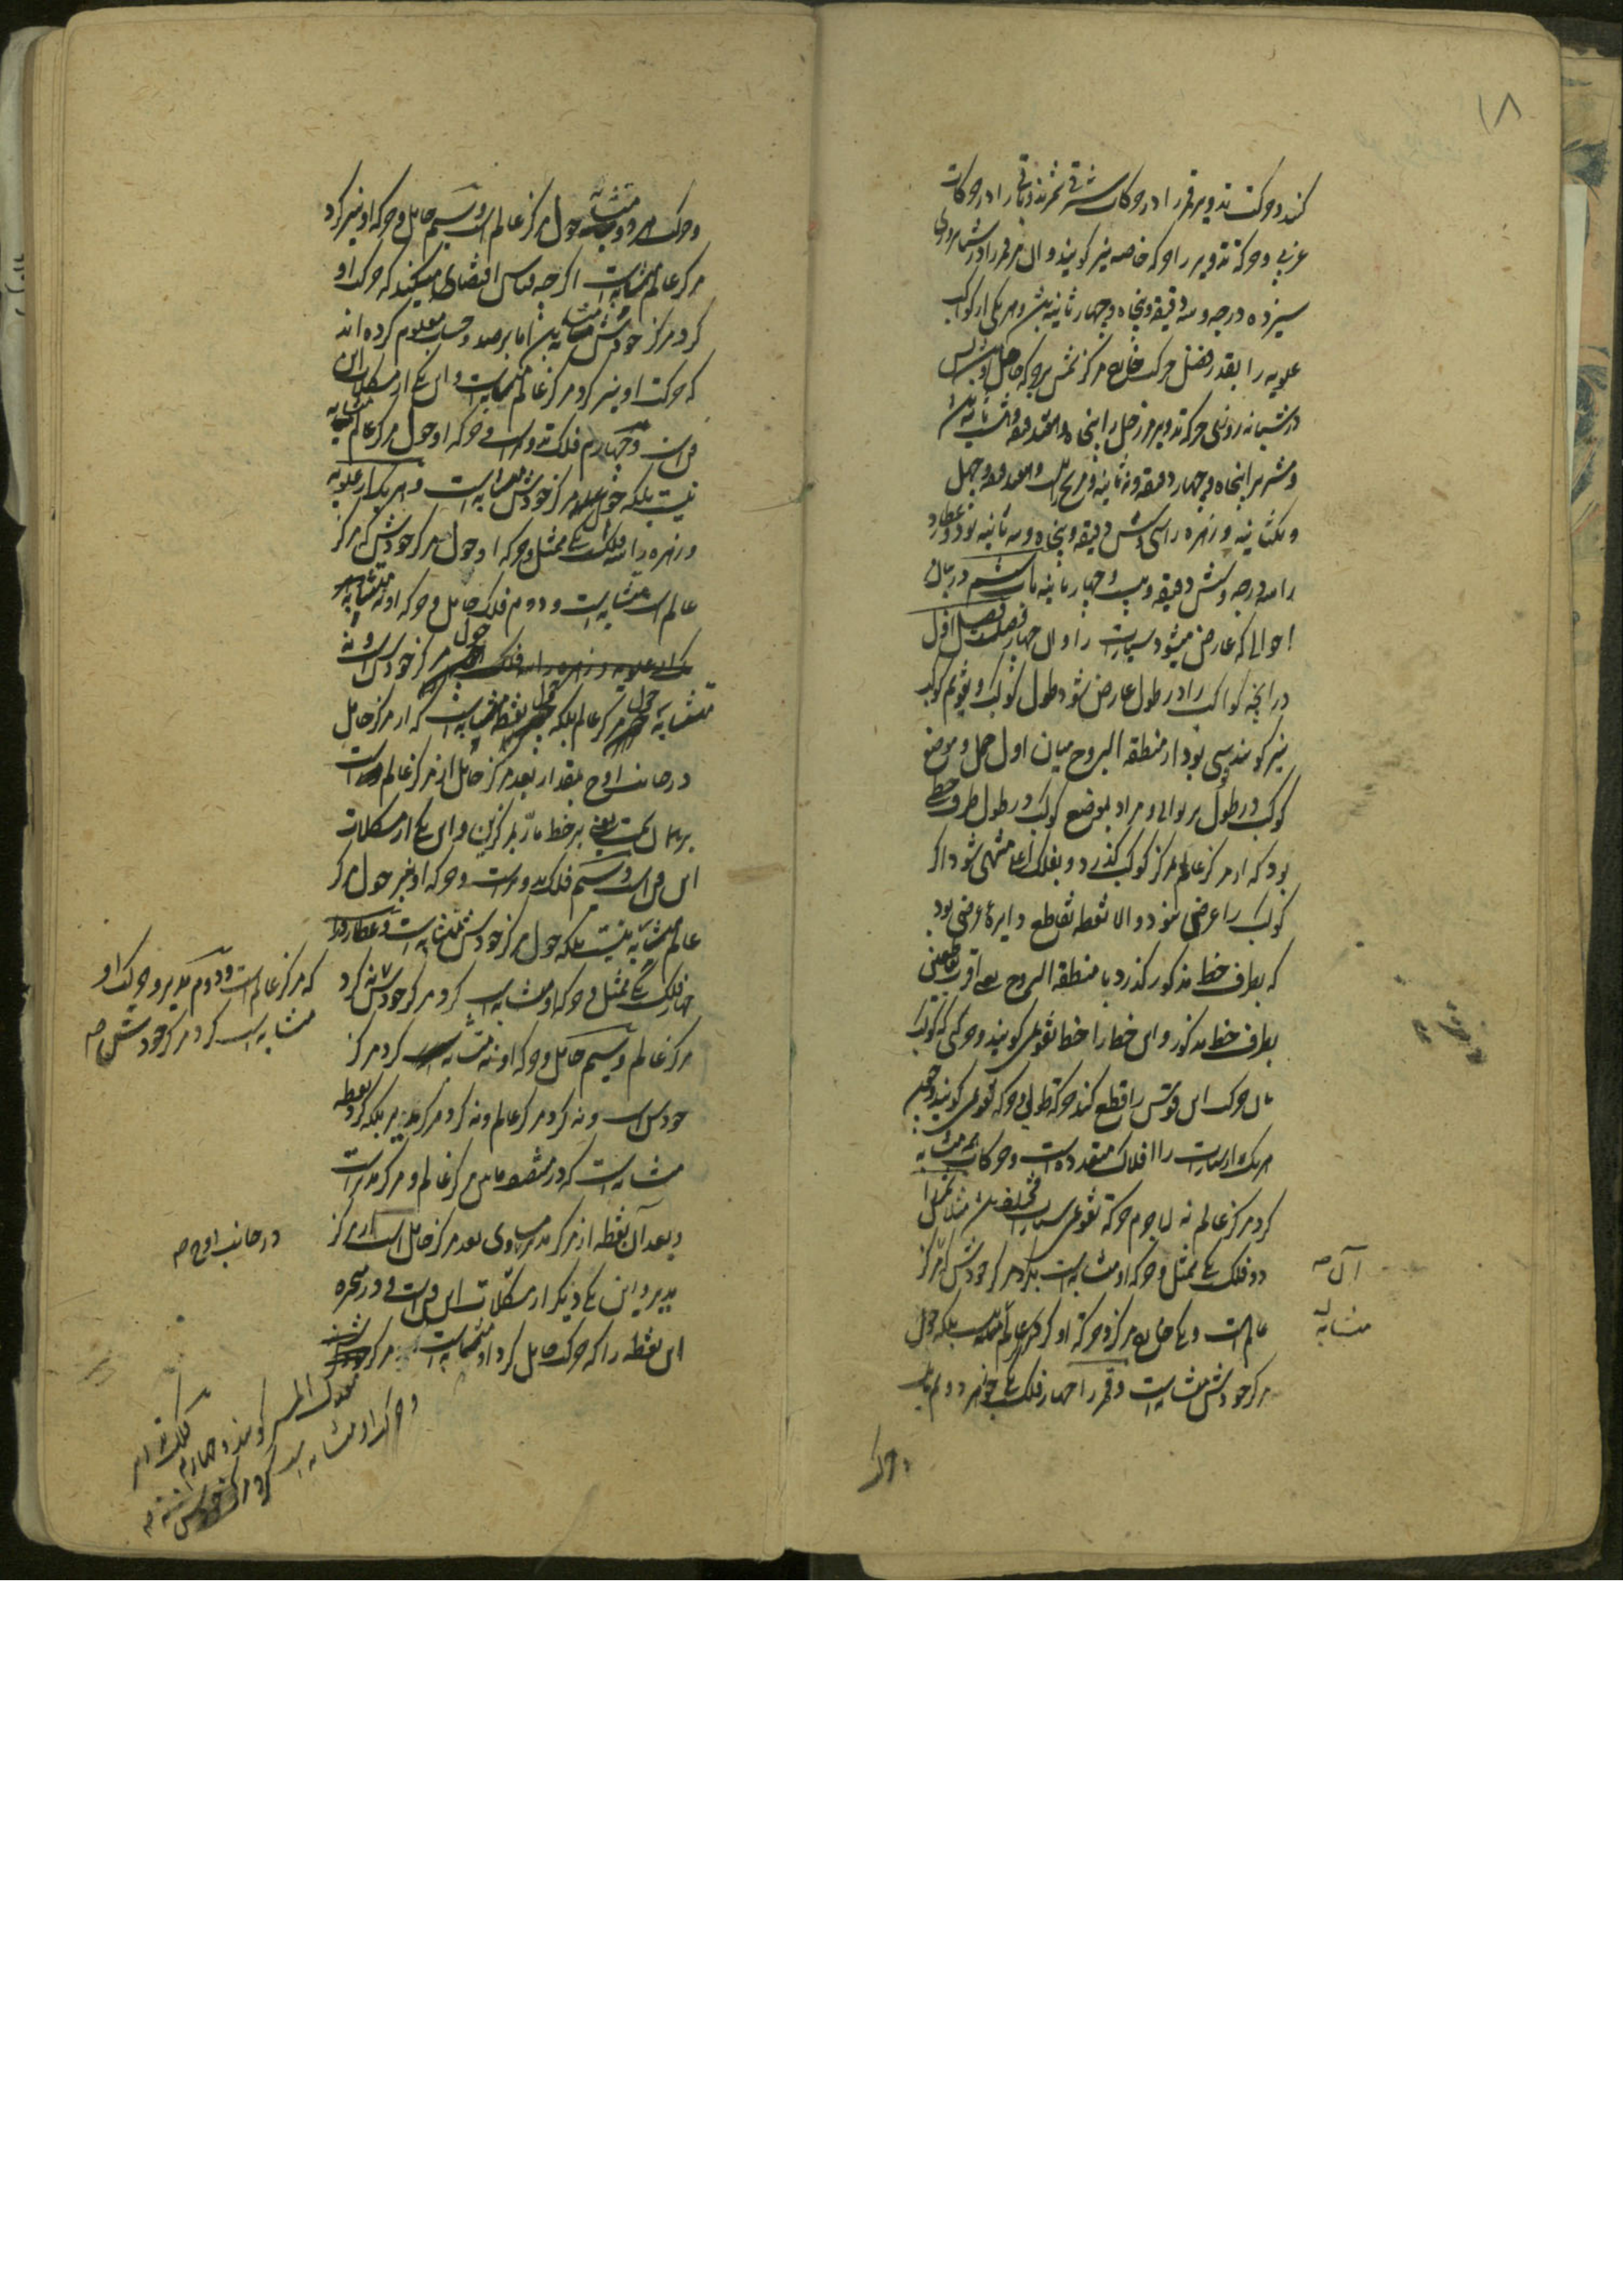 ۱۸
کنند و حرکت تدویر قمر را در حرکات شرقی شمرند و باقی را در حرکات
غربی و حرکة تدویر را حرکة خاصه نیز گویند و آن مر قمر را در شبانروزی
سیزده درجه و سه دقیقه و پنجاه و چهار ثانیه است و هر یکی از کواکب
علویه را بقدر فضل حرکت خارج مرکز شمس بر حرکة حامل اوست پس
در شبانه روزی حرکة تدویر مر زحل را پنجاه و هفت دقیقه و ثانیه است
و مشتری را پنجاه و چهار دقیقه و نه ثانیه و مریخ را بیست و هفت دقیقه و چهل
و یکثانیه و زهره را سی و شش دقیقه و پنجاه و سه ثانیه بود و عطارد
را سه درجه و شش دقیقه و بیست و چهار ثانیه باب ششم در بیان
احوالی که عارض میشود سیارات را و آن چهار فصلست فصل اول
در آنچه کواکب را در طول عارض شود طول کوکب و تقویم کوکب
نیز گویند قوسی بود از منطقة البروج میان اول حمل و موضع
کوکب در طول بر توالی و مراد بموضع کوکب در طول طرف خطی
بود که از مرکز عالم بمرکز کوکب گذرد و بفلک اعلی منتهی شود اگر
کوکب را عرض نبود و الا نقطه تقاطع دایرهٔ عرضی بود
که بطرف خط مذکور گذرد با منطقة البروج یعنی اقرب تقاطعین
بطرف خط مذکور و این خط را خط تقویمی گویند و حرکتی که کوکب
بان حرکت این قوس را قطع کند حرکة طولی و حرکة تقویمی گویند و چون
هر یک از سیارات را افلاک متعدده است و حرکات همه متشابه
گرد مرکز عالم نه لاجرم حرکة تقویمی سیارات مختلف است مثلا شمس را
دو فلک است یکی ممثل و حرکة او متشابه است گرد مرکز خودش که مرکز
عالم است و یکی خارج مرکز و حرکة او گرد مرکز عالم نیست بلکه حول
مرکز خودش متشابه است و قمر را چهار فلک است یکی جوزهر دوم مایل
آن صه
متشابه
و حرکت
و حرکت هر دو متشابه حول مرکز عالم است و سیم حامل و حرکة او نیز گرد
مرکز عالم متشابه است اگر چه قیاس اقتضای آن میکند که حرکت او
گرد مرکز خودش متشابه باشد اما برصد و حساب معلوم کرده اند
که حرکت او نیز گرد مرکز عالم متشابه است و این یکی از مشکلات این
فن است و چهارم فلک تدویر است و حرکة او حول مرکز عالم متشابه
نیست بلکه حول مرکز خودش متشابه است و هر یک از علویه
و زهره را سه فلک است یکی ممثل و حرکة او حول مرکز خودش که مرکز
عالم است متشابه است و دوم فلک حامل و حرکة او نه متشابه
حول مرکز خودش است و نه
متشابه حول مرکز عالم بلکه حول نقطه متشابه است که از مرکز حامل
در جانب اوج بمقدار بعد مرکز حامل از مرکز عالم است
بر همان سمت یعنی بر خط مار بمرکزین و این یکی از مشکلات
این فن است و سیم فلک تدویر است و حرکة او نیز حول مرکز
عالم متشابه نیست بلکه حول مرکز خودش متشابه است و عطارد را
چهار فلک است یکی ممثل و حرکة او متشابه است گرد مرکز خودش نه گرد
مرکز عالم و سیم حامل و حرکة او نه متشابه است گرد مرکز
خودش است و نه گرد مرکز عالم و نه گرد مرکز مدیر بلکه گرد نقطه
متشابه است که در منتصف مابین مرکز عالم و مرکز مدیر است
و بعد آن نقطه از مرکز مدیر مساوی بعد مرکز حامل است از مرکز
مدیر و این یکی دیگر از مشکلات این فن است و
این نقطه را که حرکت حامل گرد او متشابه است مرکز
معدل المسیر گویند و چهارم فلک تدویر
و حرکت او متشابه است گرد مرکز خودش صه
که مرکز عالم است و دوم مدیر و حرکت او
متشابه است گرد مرکز خودش صه
در جانب اوج صه